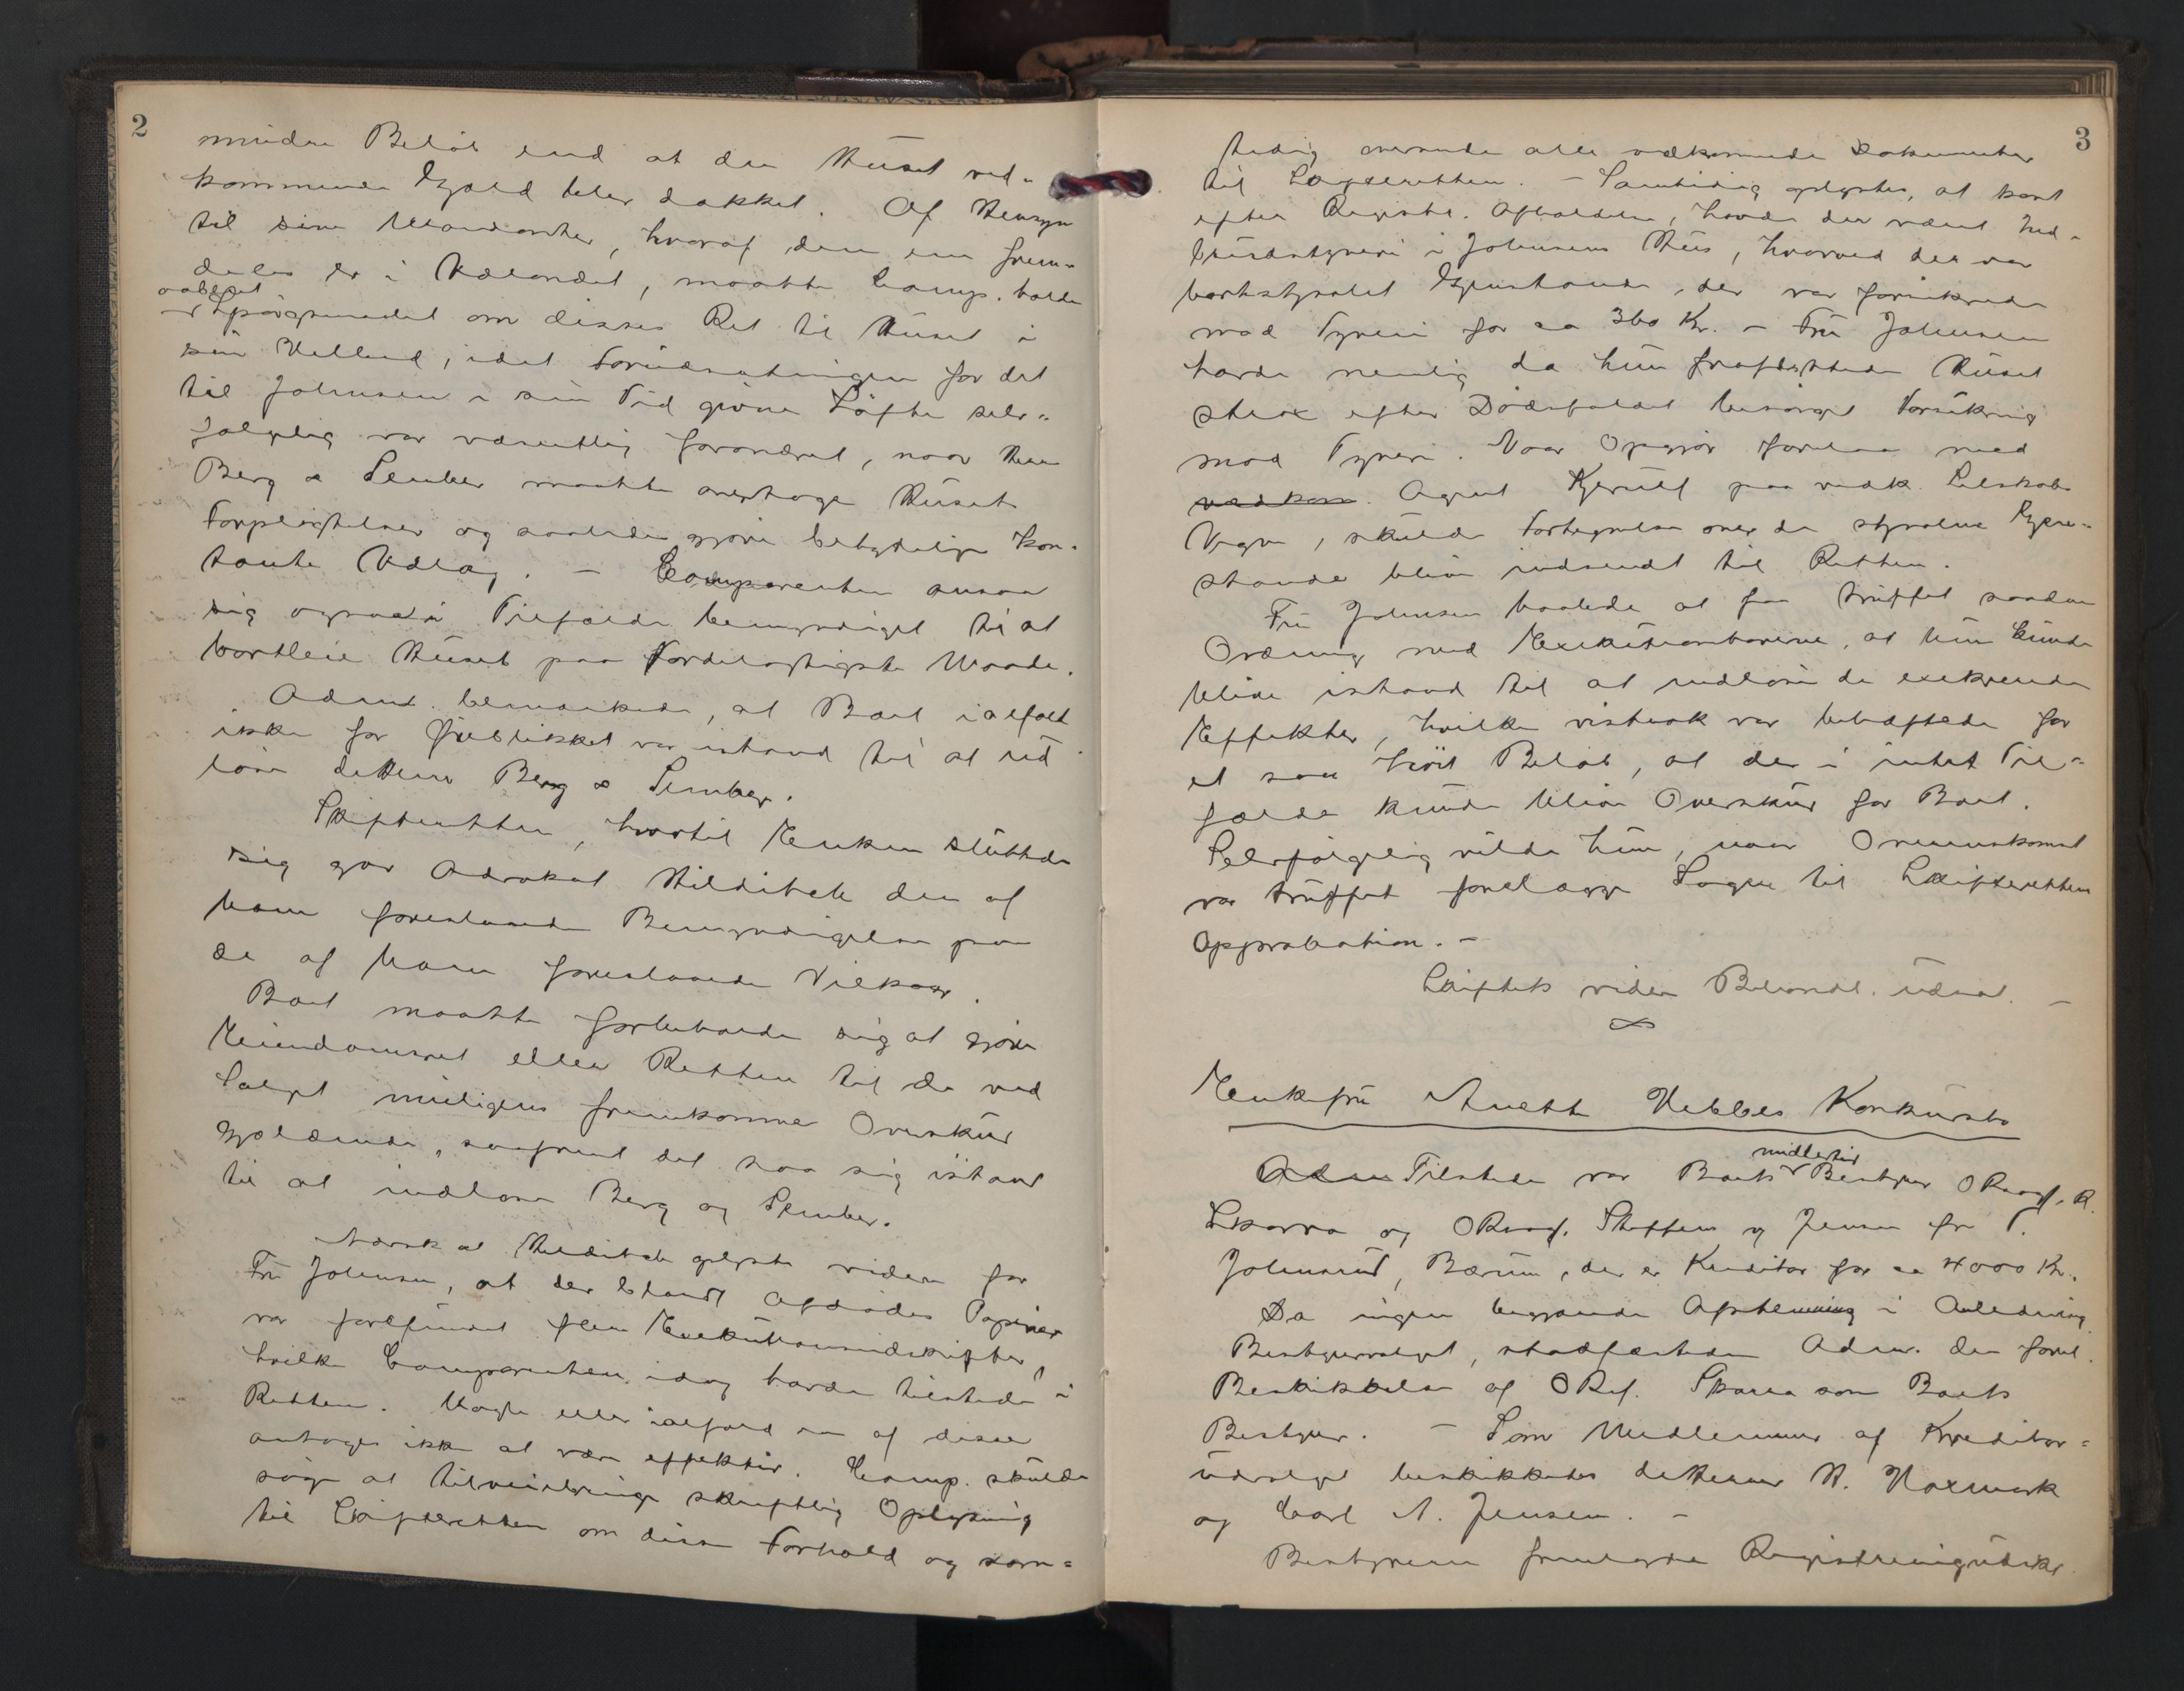 2
mindre Beløb end at den Huset ved-
kommende Gjæld blev dækket. Af Hensyn
til sine Mandanter, hvoraf den ene frem-
deles er i Udlandet, maatte Comp. holde
aabent
Spørgsmaalet om disses Ret til Huset i
sin Helhed, idet Forudsætningen for det
til Johnsen i sin Tid givne Løfte selv-
følgelig var væsentlig forandret, naar Herr
Berg & Sember maatte overtage Husets
Forpligtelser og saaledes gjøre betydelige kon-
tante Udlæg. - Comparenten ansaa
sig ogsaa i Tilfælde bemyndiget til at
bortleie Huset paa fordelagtigste Maade.
Adm. bemærkede, at Boet ialfald
ikke for Øieblikket var istand til at ud-
løse dHerrer Berg & Sember.
Skifteretten, hvortil Enken sluttede
sig gav Advokat Hilditch den af
ham foreslaaede Bemyndigelse paa
de af ham foreslaaede Vilkaar.
Boet maatte forbeholde sig at gjøre
Eiendomsret eller Retten til de ved
Salget muligens fremkomne Overskud
gjældende, saafremt det saa sig istand
til at indløse Berg og Sember.
Advokat Hilditch oplyste videre for
Fru Johnsen, at der blandt Afdødes Papirer
var forefundet flere Exekutionsudskrifter,
hvilke Comparenten idag havde tilstede i
Retten. Nogle eller ialfald en af disse
antoges ikke at være effektiv. Comp. skulde
søge at tilveiebringe skriftlig Oplysning
til Skifteretten om disse Forhold og sam-
3
tidig oversende alle vedkommende Dokumenter
til Skifteretten. - Samtidig oplystes, at kort
efter Registr. Afholdelse, havde der været Ind-
brudstyveri i Johnsens Hus, hvorved der var
bortstjaalet Gjenstande, der var forsikrede
mod Tyveri for ca 360 Kr. - Fru Johnsen
havde nemlig da hun fraflyttede Huset
strax efter Dødsfaldet besørget Forsikring
mod Tyveri. Naar Opgjør forelaa med
vedkom. Agent Kjerulf paa vedk. Selskabs
Vegne, skulde Fortegnelse over de stjaalne Gjen-
stande blive indsendt til Retten.
Fru Johnsen haabede at faa truffet saadan
Ordning med Exekutionshaverne, at hun kunde
blive istand til at indløse de exekverede
Effekter, hvilke vistnok var behæftede for
et saa høit Beløb, at der i intet Til-
fælde kunde blive Overskud for Boet.
Selvfølgelig vilde hun, naar Overenskomst
var truffet forelægge Sagen til Skifteretten
Approbation. -
Skiftets videre Behandl. udsat. -
Enkefru Anette Hebbes Konkursbo
Adm Tilstede var Boets midlertid Bestyrer ORsagf. R.
Skarra og ORsagf. Steffens og Jensen for T.
Johnsrud, Bærum, der er Kreditor for ca 4000 Kr.
Da ingen begjærede Afstemning i Anledning
Bestyrervalget, stadfæstede Adm. den forel.
Beskikkelse af ORsf. Skarra som Boets
Bestyrer. - Som Medlemmer af Kreditor-
udvalget beskikkedes dHerrer H. Hoxmark
og Carl A. Jensen. -
Bestyreren fremlagde Registreringsudskr.